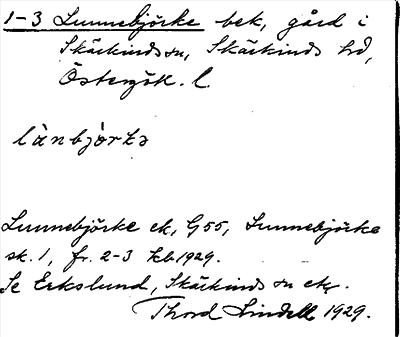 1-3 Lunnebjörke bek, gård i
Skärkinds sn, Skärkinds hd,
Östergök. l.
lànbjòrkə
Lunnebjörke ek, G55, Lunnebjörke
sk. 1, fr. 2-3 kb 1929.
Se Erkslund, Skärkinds sn ek.
Thord Lindell 1929.